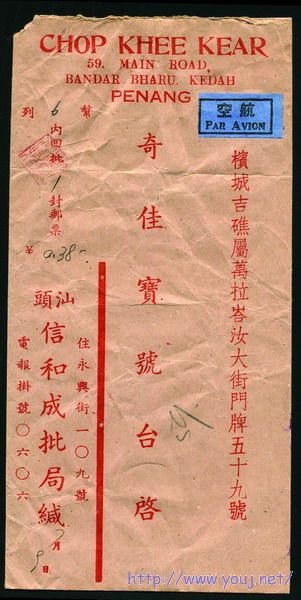 CHOP KHEE KEAR
59. MAIN ROAD,
BANDAR BHARU, KEDAH
PENANG
空航
PAR AVION
檳城吉礁屬萬拉峇汝大街門牌五十九號
奇佳寶號台啓
幫
6內回批1封郵票
列
¥ 0.38-
住永興街一〇九號
汕頭
信和成批局緘
月9日
電報掛號〇六〇六
http://www.youj.net/